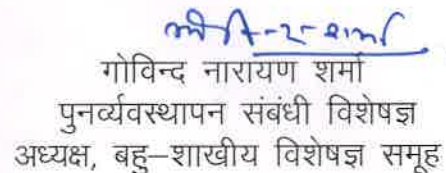 गोविन्द नारायण शर्मा
पुनर्व्यवस्थापन संबंधी विशेषज्ञ
अध्यक्ष, बहु–शाखीय विशेषज्ञ समूह